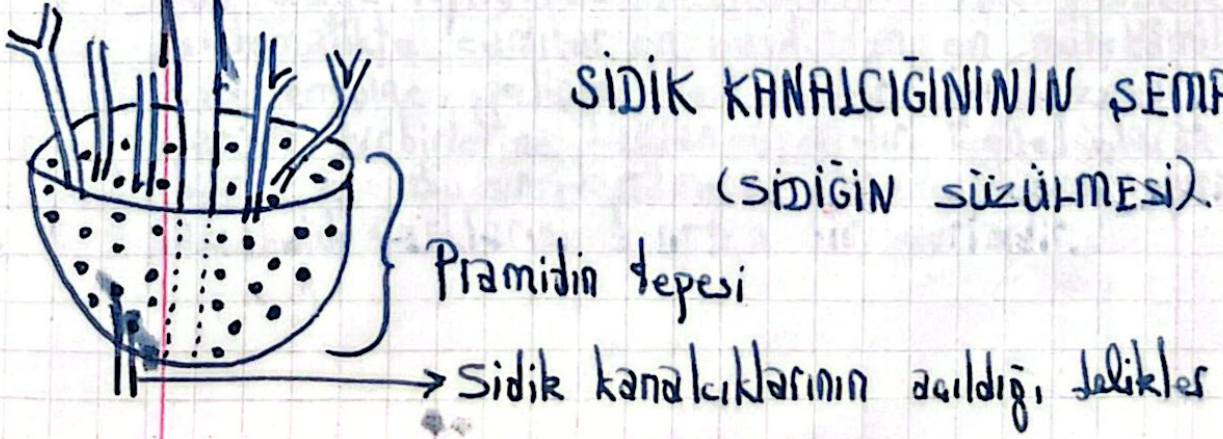 SİDİK KANALCIĞINININ ŞEMA
(SİDİĞİN SÜZÜLMESİ)
Pramidin tepesi
Sidik kanalcıklarının açıldığı delikler